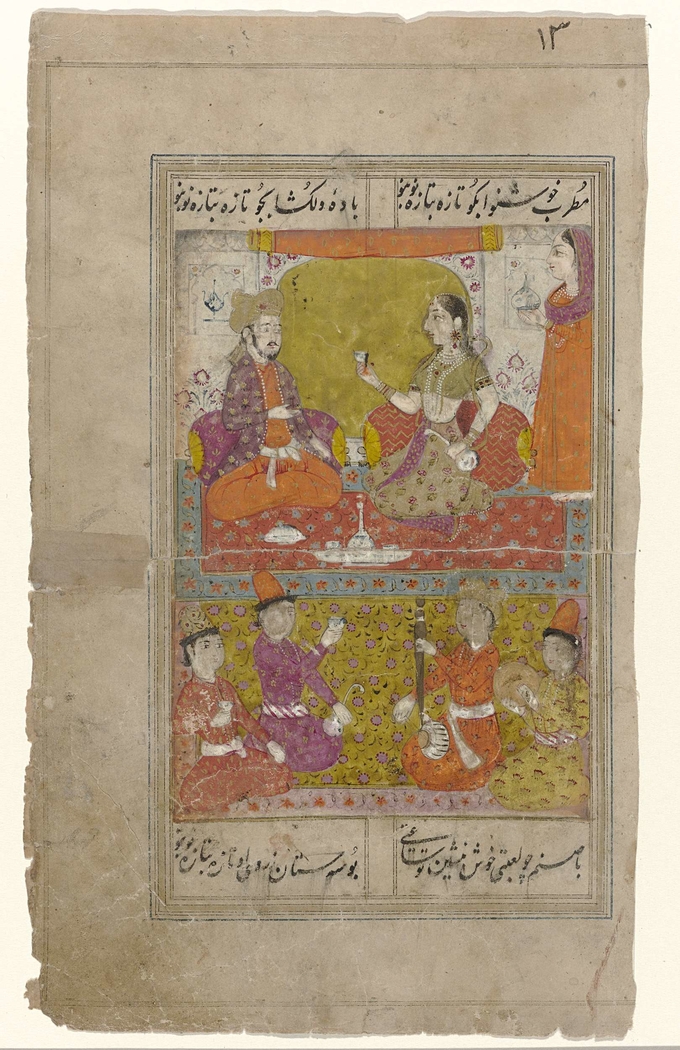 ۱۳
مطرب خوشنوا بکو تازه بتازه نو بنو
بادۀ دلکشا بجو تازه بتازه نو بنو
با صنم چو لعبتی خوش بنشین تو ساعتی
بوسه ستان ز روی او تازه بتازه نو بنو